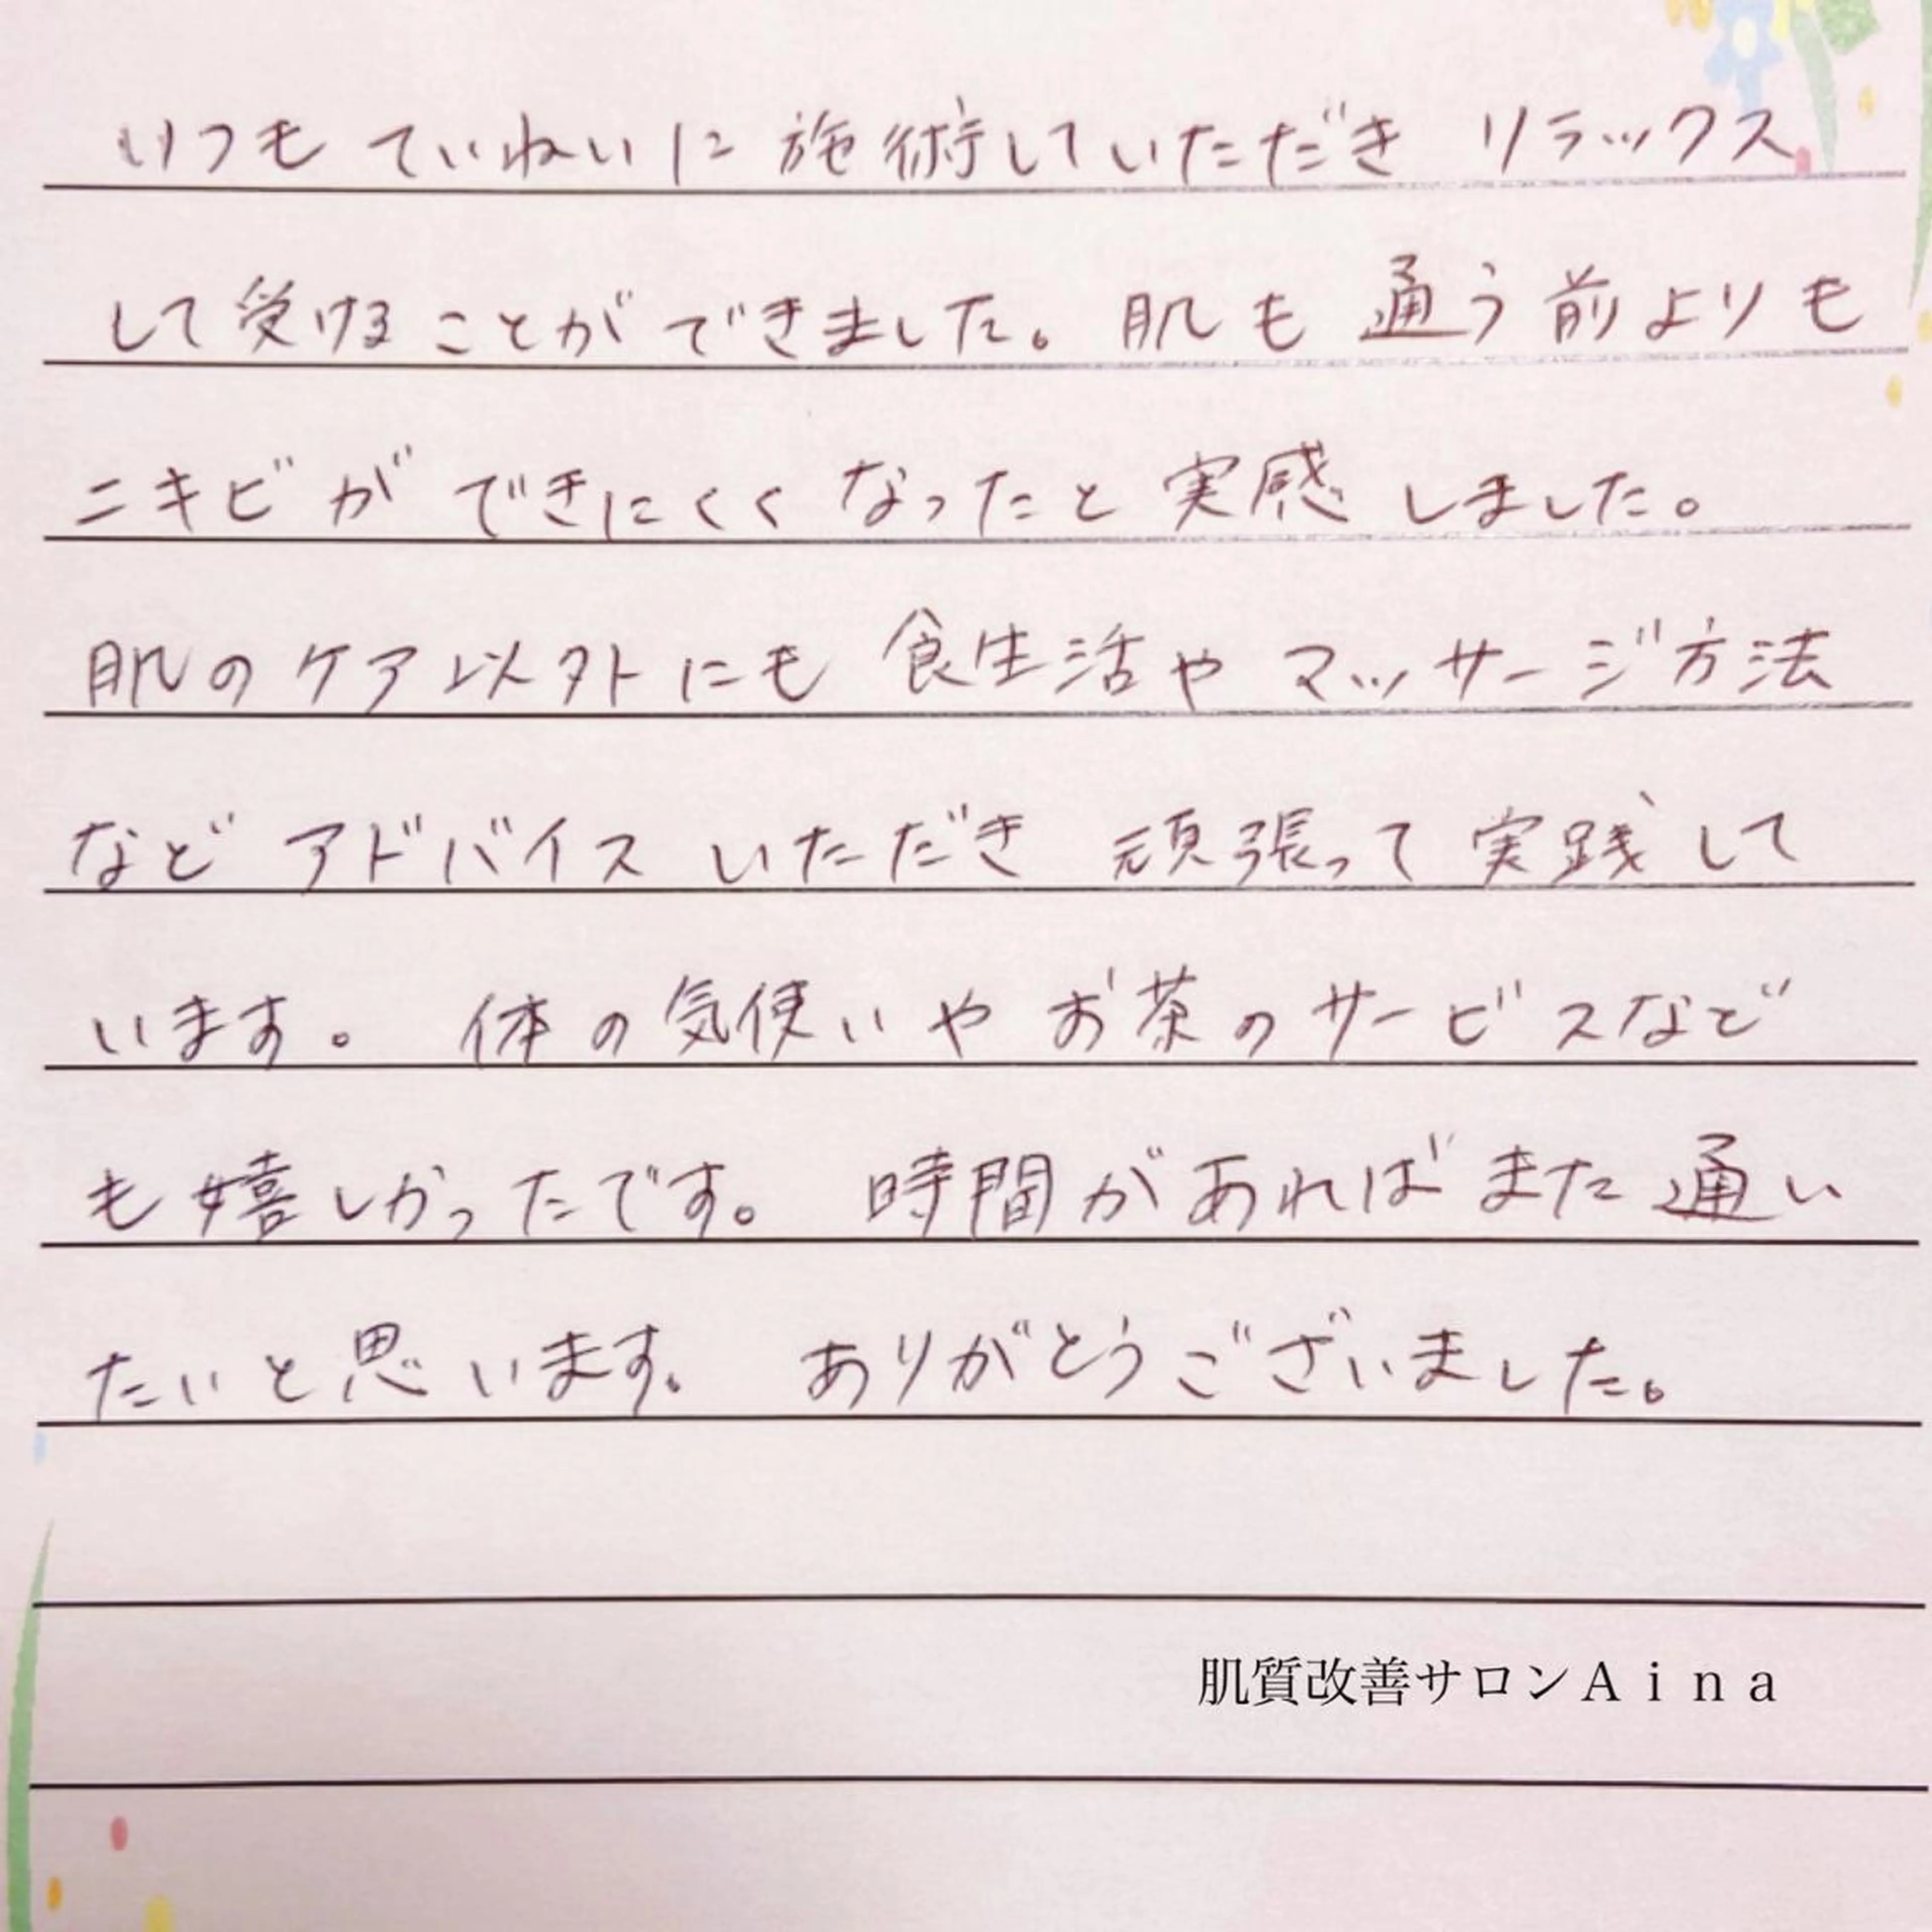 いつもていねいに施術していただき リラックス
して受けることができました。肌も通う前よりも
ニキビができにくくなったと実感しました。
肌のケア以外にも食生活やマッサージ方法
などアドバイスいただき 頑張って実践して
います。 体の気使いやお茶のサービスなど
も嬉しかったです。 時間があればまた通い
たいと思います。 ありがとうございました。
肌質改善サロンＡｉｎａ